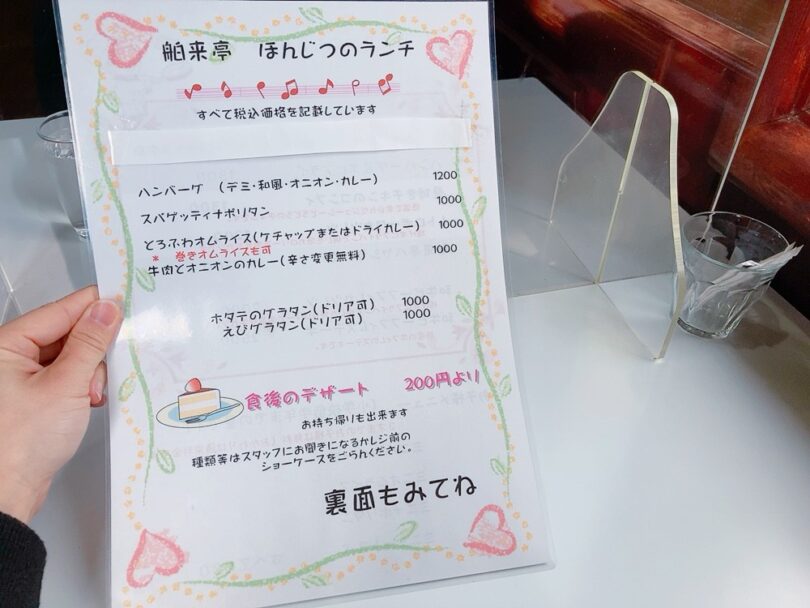 舶来亭　ほんじつのランチ
すべて税込価格を記載しています
ハンバーグ　（デミ・和風・オニオン・カレー） 1200
スパゲッティナポリタン 1000
とろふわオムライス(ケチャップまたはドライカレー) 1000
＊　巻きオムライスも可
牛肉とオニオンのカレー(辛さ変更無料) 1000
ホタテのグラタン(ドリア可) 1000
えびグラタン(ドリア可) 1000
食後のデザート　200円より
お持ち帰りも出来ます
種類等はスタッフにお聞きになるかレジ前の
ショーケースをごらんください。
裏面もみてね